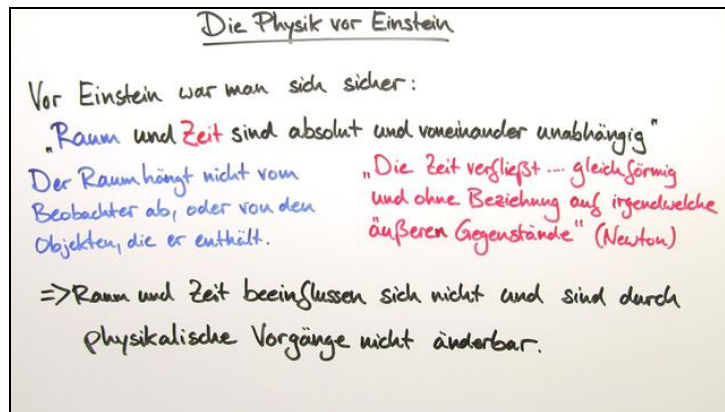 Die Physik vor Einstein
Vor Einstein war man sich sicher:
„Raum und Zeit sind absolut und voneinander unabhängig"
Der Raum hängt nicht vom
Beobachter ab, oder von den
Objekten, die er enthält.
„Die Zeit verfließt .... gleichförmig
und ohne Beziehung auf irgendwelche
äußeren Gegenstände" (Newton)
=> Raum und Zeit beeinflussen sich nicht und sind durch
physikalische Vorgänge nicht änderbar.